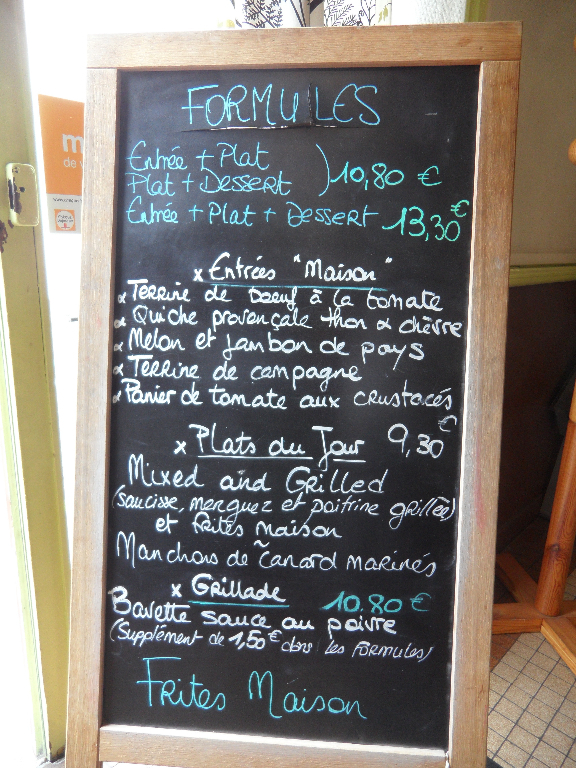 FORMULES
Entrée + Plat
Plat + Dessert ) 10,80 €
Entrée + Plat + Dessert 13,30 €
x Entrées "Maison"
x Terrine de boeuf à la tomate
x Quiche provençale thon & chèvre
x Melon et jambon de pays
x Terrine de campagne
x Panier de tomate aux crustacés
x Plats du Jour 9,30 €
Mixed and Grilled
(saucisse, merguez et poitrine grillée)
et frites maison
Manchons de canard marinés
x Grillade 10.80 €
Bavette sauce au poivre
(Supplément de 1,50 € dans les formules)
Frites Maison
m
de v